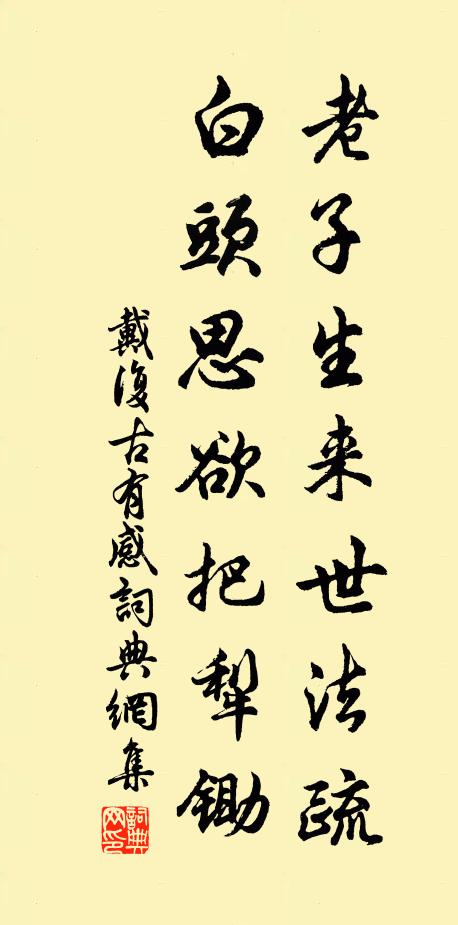 老子生来世法疏
白頭思欲把犁鋤
戴復古有感詞典網集
詞典网印